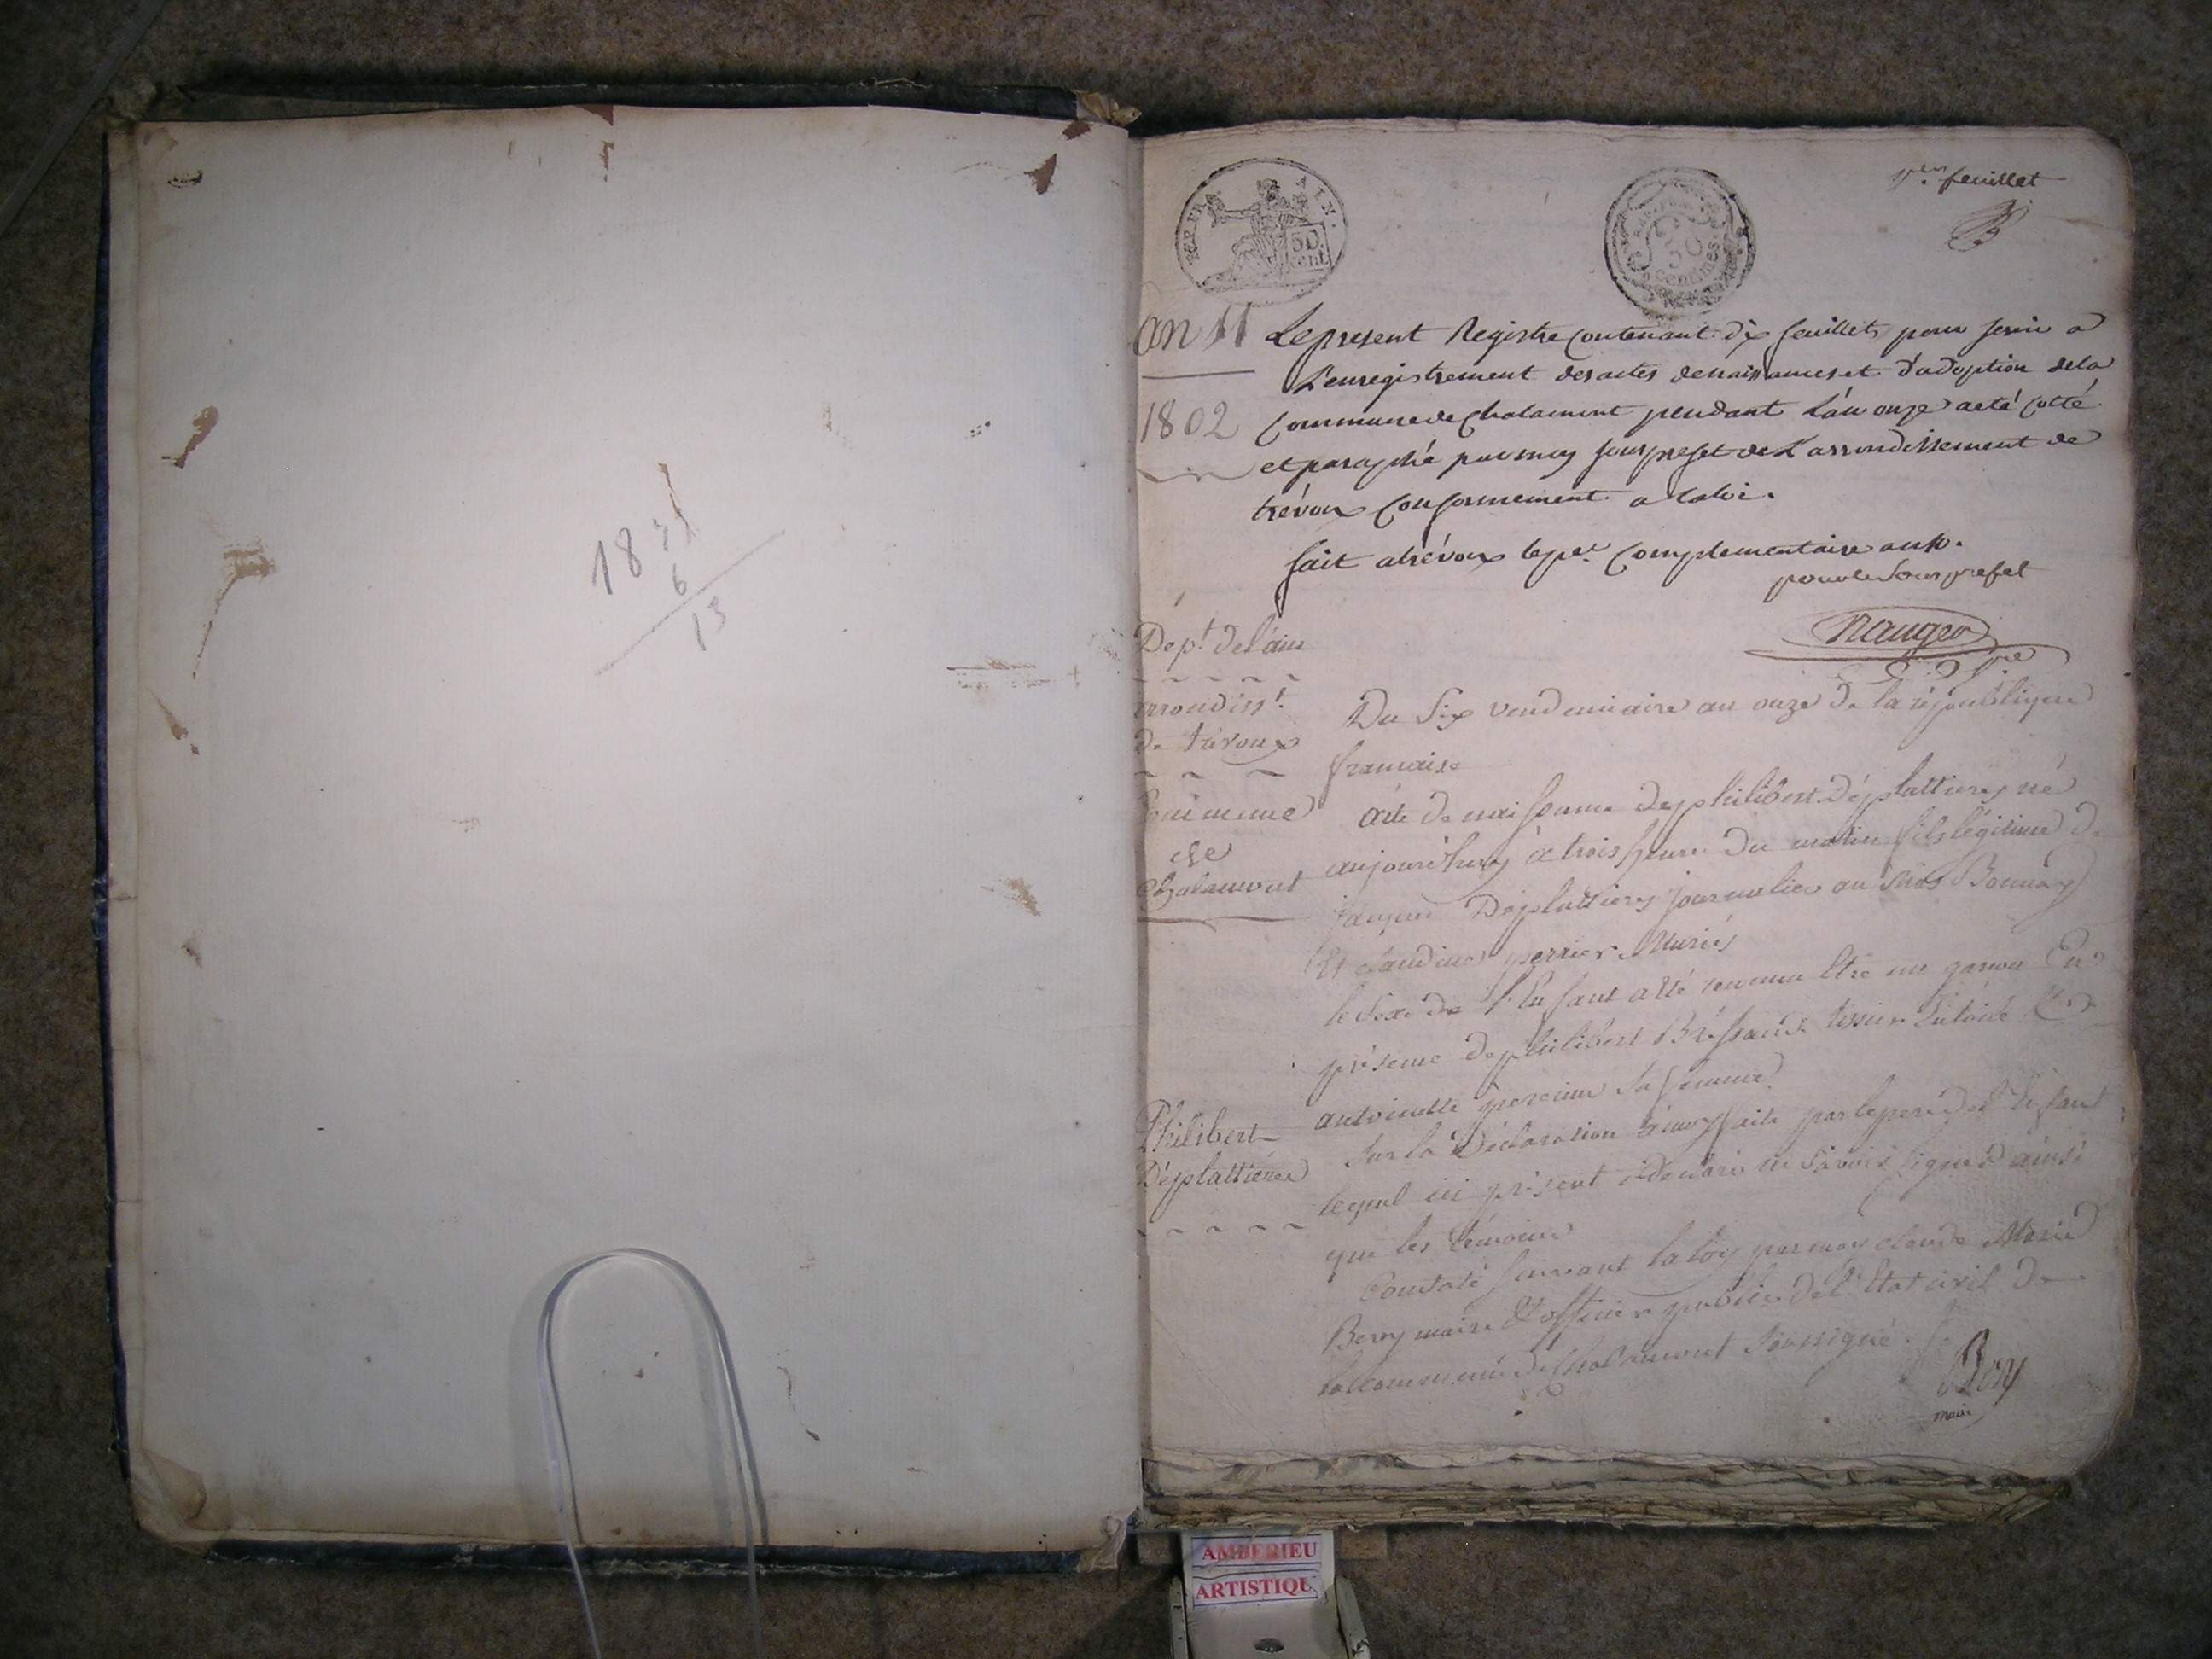 18 71
6
13
1er feuillet
REP. FRA
50
cent
50
Centimes
an 11
1802
Le present Registre contenant dix feuillets pour servir a
L'enregistrement des actes de naissances et d'adoption de la
Commune de Chalamont pendant L'an onze a eté cotté
et paraphé par moy sous prefet de L'arrondissement de
trévoux conformement a la loi.
fait a trévoux le per complementaire an 10.
pour le Sous prefet
Dept de l'ain
arrondisst
de trévoux
Commune
de
Chalamont
Du Six vendemiaire an onze de la république
francaise
acte de naissance de philibert Déplattieres né
aujourd'huy à trois heures du matin fils légitime de
jacques Déplattieres journalier au
Et claudine perrier Mariés
le Sexe de l'Enfant a été reconnu Etre un garcon En
présence de philibert tissier En toile Et
antoinette sa femme
Philibert
Déplattieres
Sur la Déclaration à moy faite par le pere de l'Enfant
lequel ici présent a déclaré ne Savoir Signer ainsi
que les témoins
Constaté Suivant la loy par moy claude Marie
Bery maire Et officier public de l'Etat civil de
la Commune de Chalamont Soussigné.
Bery
maire
AMBERIEU
ARTISTIQU